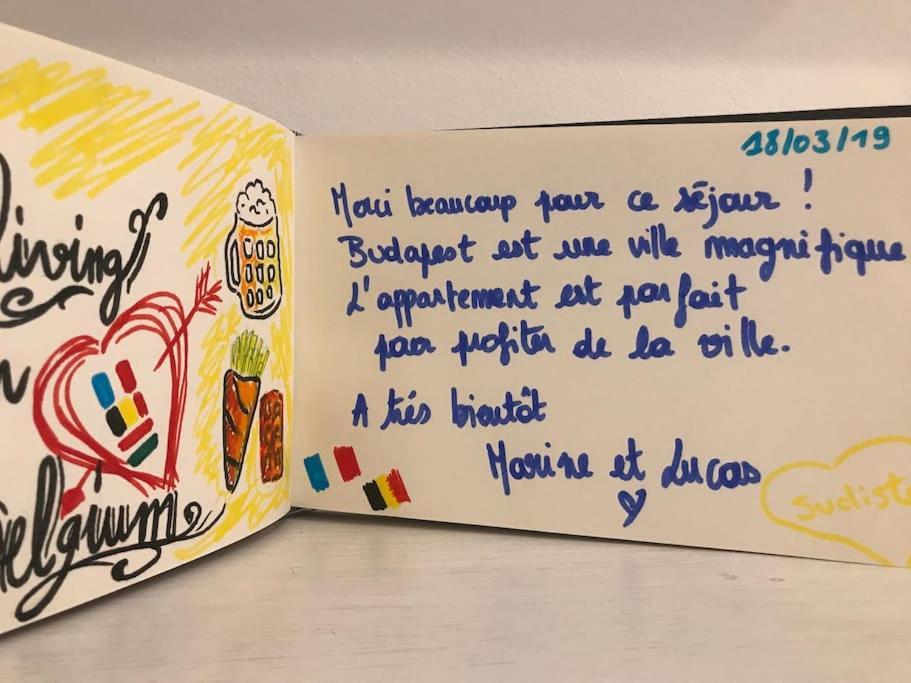 living
Belgium
18/03/19
Merci beaucoup pour ce séjour !
Budapest est une ville magnifique
L'appartement est parfait
pour profiter de la ville.
A très bientôt
Marine et Lucas